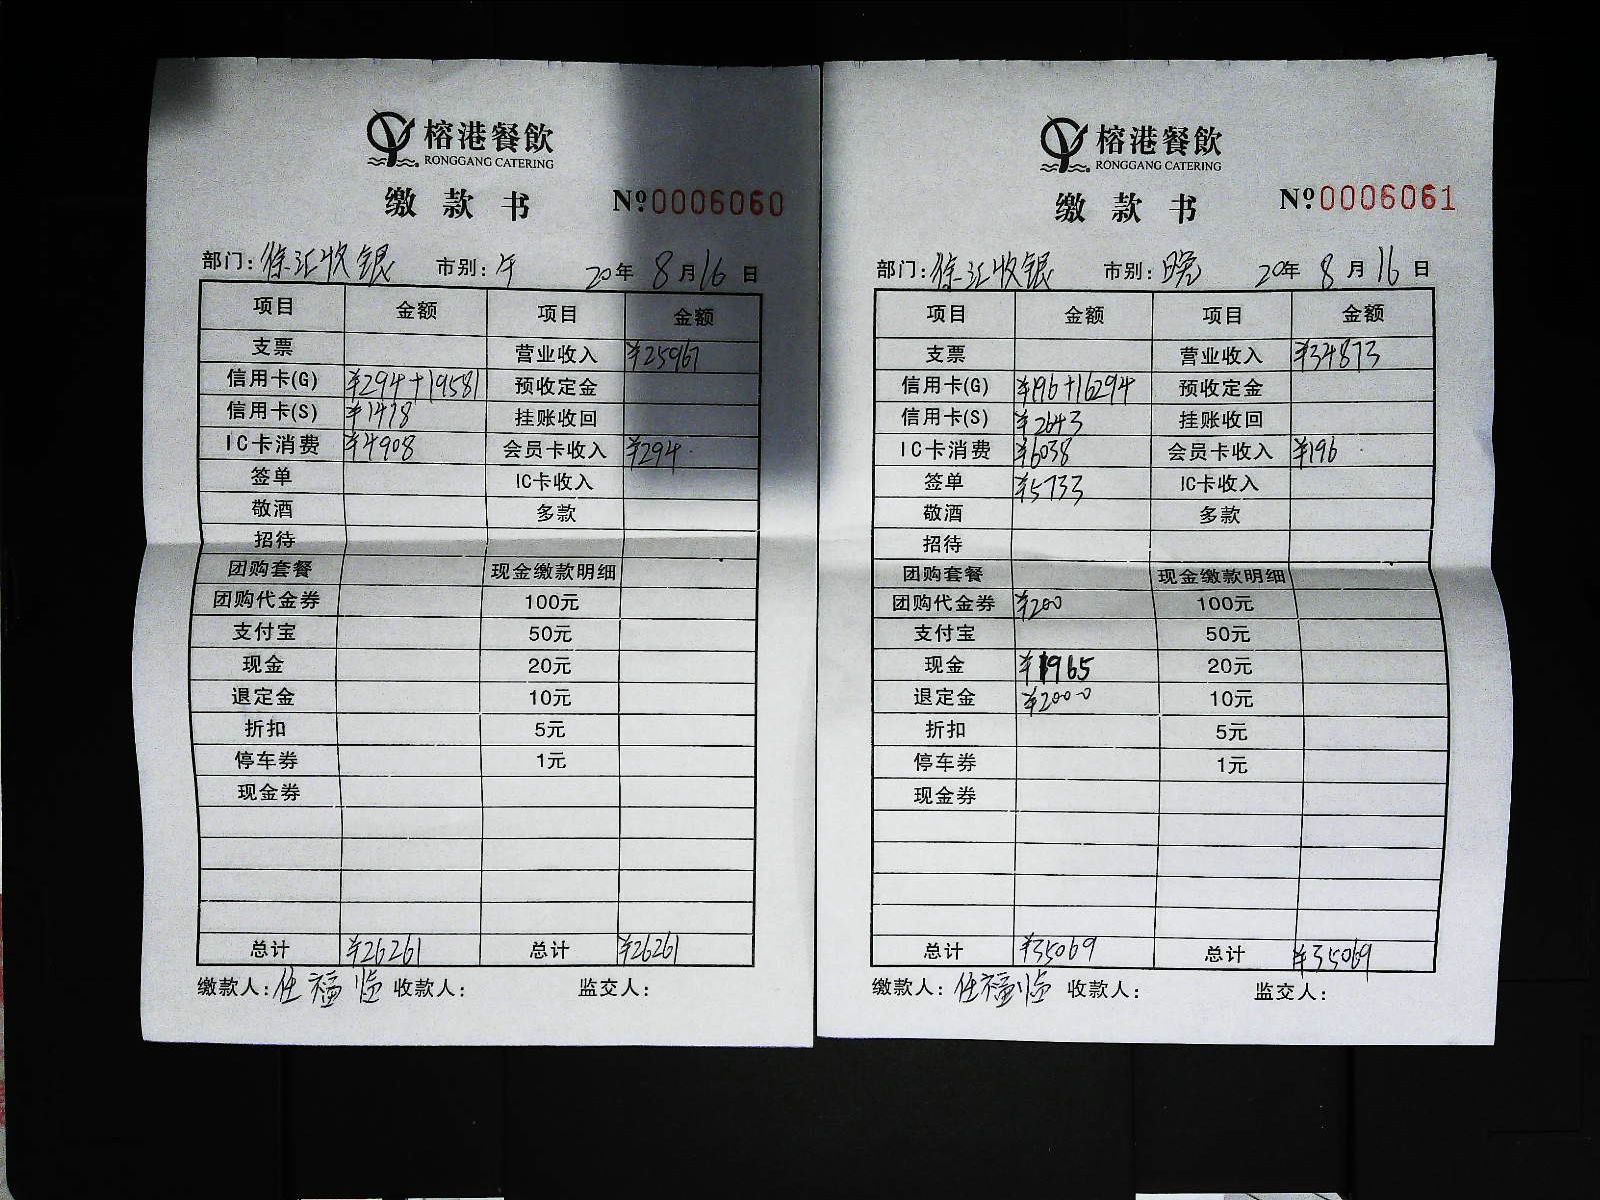 榕港餐飲
RONGGANG CATERING
缴款书 №0006060
部门:徐汇收银 市别:午 20年8月16日
项目 金额 项目 金额
支票 营业收入 ¥25967
信用卡(G) ¥294+19581 预收定金
信用卡(S) ¥1478 挂账收回
IC卡消费 ¥4908 会员卡收入 ¥294
签单 IC卡收入
敬酒 多款
招待
团购套餐 现金缴款明细
团购代金券 100元
支付宝 50元
现金 20元
退定金 10元
折扣 5元
停车券 1元
现金券
总计 ¥26261 总计 ¥26261
缴款人:任福临 收款人: 监交人:
榕港餐飲
RONGGANG CATERING
缴款书 №0006061
部门:徐汇收银 市别:晚 20年8月16日
项目 金额 项目 金额
支票 营业收入 ¥34873
信用卡(G) ¥196+16294 预收定金
信用卡(S) ¥2643 挂账收回
IC卡消费 ¥6038 会员卡收入 ¥196
签单 ¥5733 IC卡收入
敬酒 多款
招待
团购套餐 现金缴款明细
团购代金券 ¥200 100元
支付宝 50元
现金 ¥1965 20元
退定金 ¥2000 10元
折扣 5元
停车券 1元
现金券
总计 ¥35069 总计 ¥35069
缴款人:任福临 收款人: 监交人: